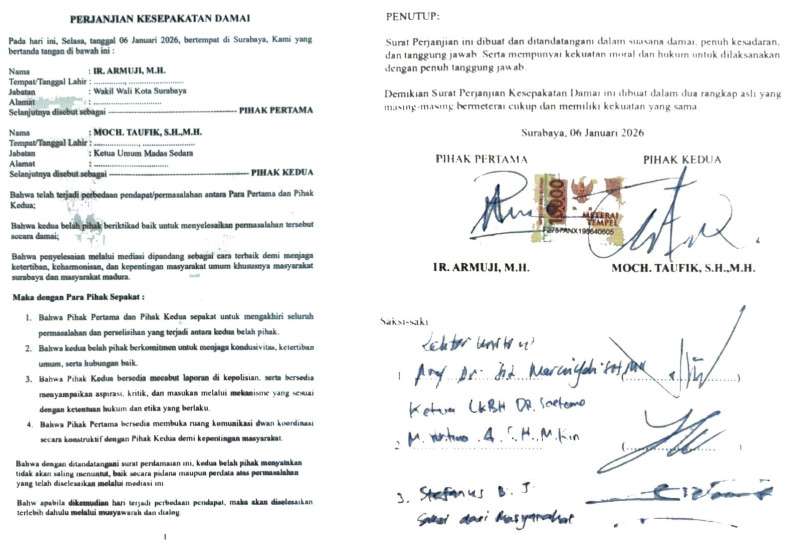 PERJANJIAN KESEPAKATAN DAMAI
Pada hari ini, Selasa, tanggal 06 Januari 2026, bertempat di Surabaya, Kami yang
bertanda tangan di bawah ini :
Nama : IR. ARMUJI, M.H.
Tempat/Tanggal Lahir : ............, ........................
Jabatan : Wakil Wali Kota Surabaya
Alamat : ............................
Selanjutnya disebut sebagai ------------------------------------ PIHAK PERTAMA
Nama : MOCH. TAUFIK, S.H.,M.H.
Tempat/Tanggal Lahir : ............, ........................
Jabatan : Ketua Umum Madas Sedara
Alamat : ............................
Selanjutnya disebut sebagai ------------------------------------ PIHAK KEDUA
Bahwa telah terjadi perbedaan pendapat/permasalahan antara Para Pertama dan Pihak
Kedua;
Bahwa kedua belah pihak beriktikad baik untuk menyelesaikan permasalahan tersebut
secara damai;
Bahwa penyelesaian melalui mediasi dipandang sebagai cara terbaik demi menjaga
ketertiban, keharmonisan, dan kepentingan masyarakat umum khususnya masyarakat
surabaya dan masyarakat madura.
Maka dengan Para Pihak Sepakat :
1. Bahwa Pihak Pertama dan Pihak Kedua sepakat untuk mengakhiri seluruh
permasalahan dan perselisihan yang terjadi antara kedua belah pihak.
2. Bahwa kedua belah pihak berkomitmen untuk menjaga kondusivitas, ketertiban
umum, serta hubungan baik.
3. Bahwa Pihak Kedua bersedia mecabut laporan di kepolisian, serta bersedia
menyampaikan aspirasi, kritik, dan masukan melalui mekanisme yang sesuai
dengan ketentuan hukum dan etika yang berlaku.
4. Bahwa Pihak Pertama bersedia membuka ruang komunikasi dwan koordinasi
secara konstruktif dengan Pihak Kedua demi kepentingan masyarakat.
Bahwa dengan ditandatangani surat perdamaian ini, kedua belah pihak menyatakan
tidak akan saling menuntut, baik secara pidana maupun perdata atas permasalahan
yang telah diselesaikan melalui mediasi ini
Bahw apabila dikemudian hari terjadi perbedaan pendapat, maka akan diselesaikan
terlebih dahulu melalui musyawarah dan dialog.
1
PENUTUP:
Surat Perjanjian ini dibuat dan ditandatangani dalam suasana damai, penuh kesadaran,
dan tanggung jawab. Serta mempunyai kekuatan moral dan hukum untuk dilaksanakan
dengan penuh tanggung jawab.
Demikian Surat Perjanjian Kesepakatan Damai ini dibuat dalam dua rangkap asli yang
masing-masing bermeterai cukup dan memiliki kekuatan yang sama.
Surabaya, 06 Januari 2026
PIHAK PERTAMA PIHAK KEDUA
10000
METERAI
TEMPEL
IR. ARMUJI, M.H. MOCH. TAUFIK, S.H.,M.H.
Saksi-saksi
1 Prof Dr. Siti Marwiyah
Ketua LKBH DR. Soetomo
2
3. Stefanus B. J
Saksi dari Masyarakat